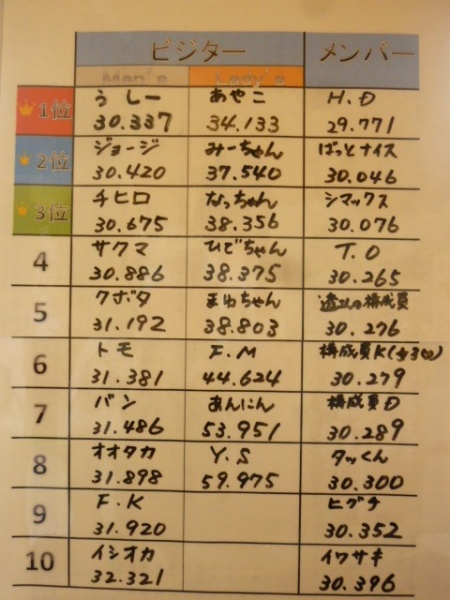 ビジター メンバー
Men's Lady's
1位 うしー あやこ H.O
30.337 34.133 29.771
2位 ジョージ みーちゃん ばっとナイス
30.420 37.540 30.046
3位 チヒロ なっちゃん シマックス
30.675 38.356 30.076
4 サクマ ひでちゃん T.O
30.886 38.375 30.265
5 クボタ まゆちゃん の構成員
31.192 38.803 30.276
6 トモ F.M 構成員K
31.381 44.624 30.279
7 バン あんにん 構成員D
31.486 53.951 30.289
8 オオタカ Y.S タッくん
31.898 59.975 30.300
9 F.K ヒグチ
31.920 30.352
10 イシオカ イワサキ
32.321 30.396